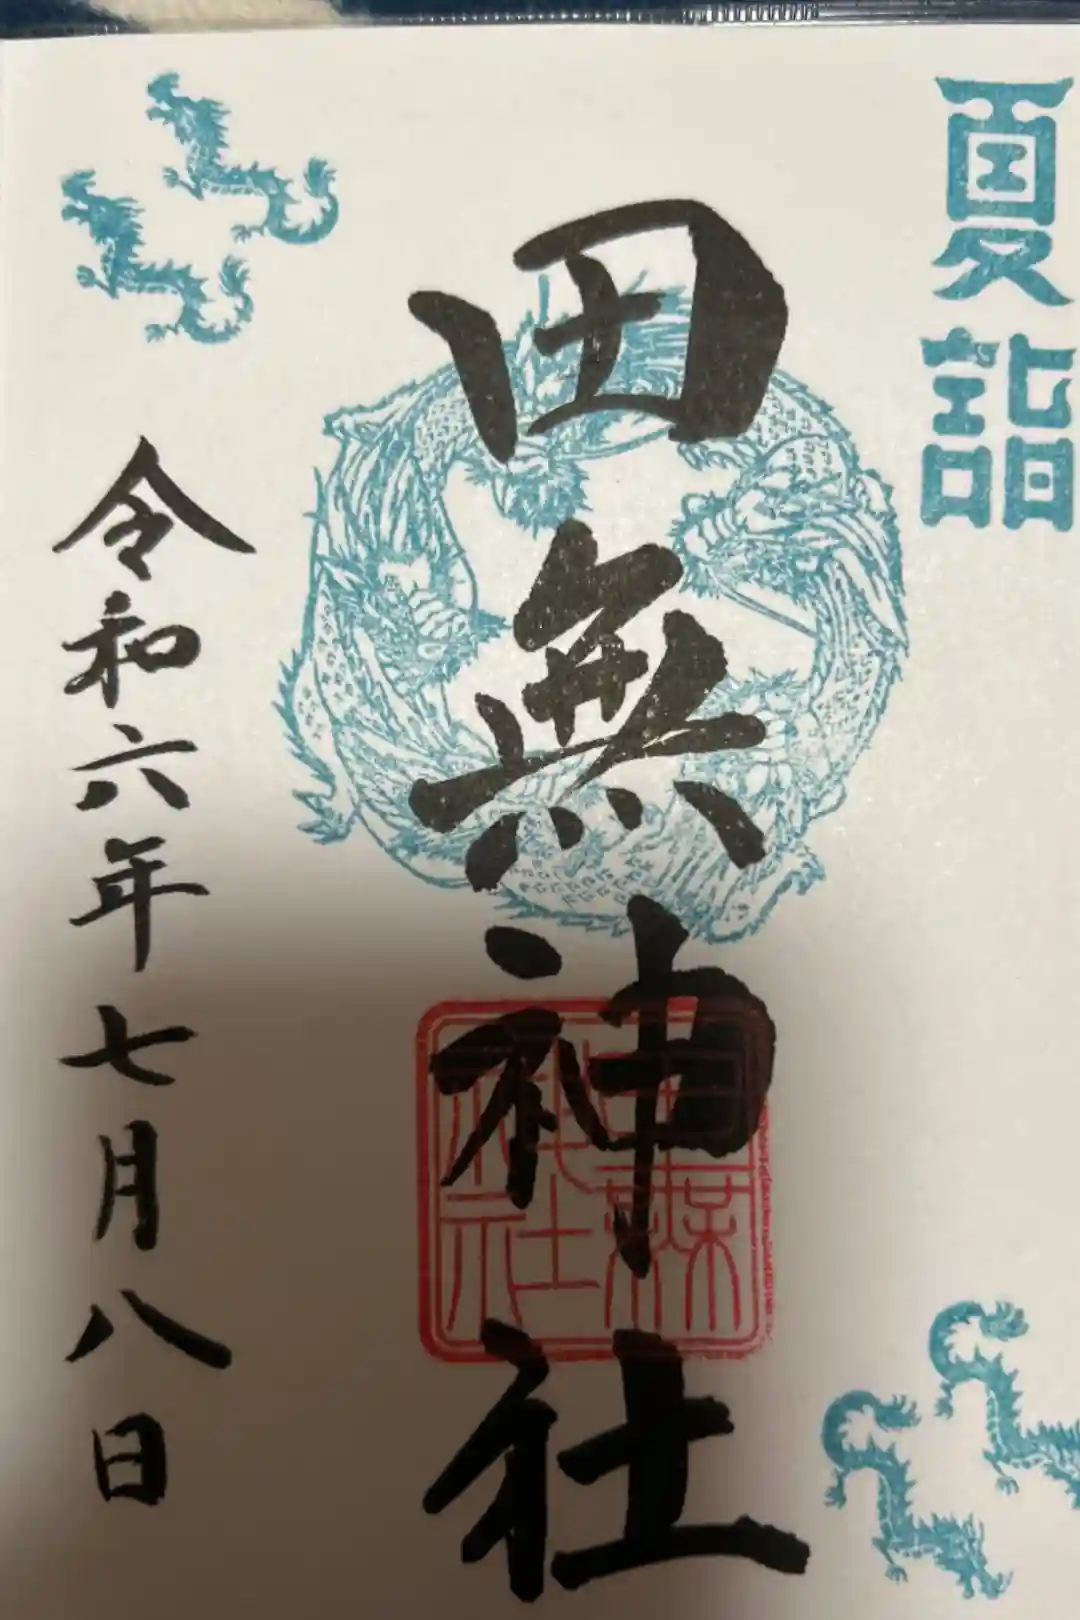 夏詣
田無神社
令和六年七月八日
田無神社